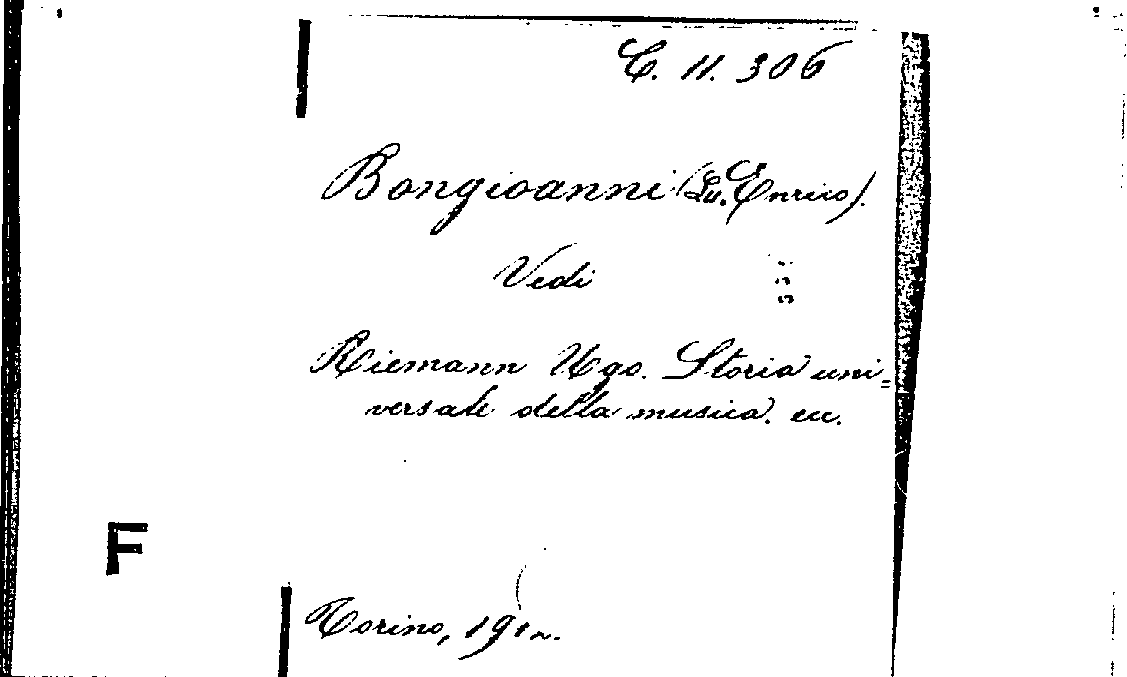 C. 11. 306
Bongioanni (Lu. Enrico).
Vedi
Riemann Ugo. Storia uni=
versale della musica. ecc.
F
Torino, 1912.